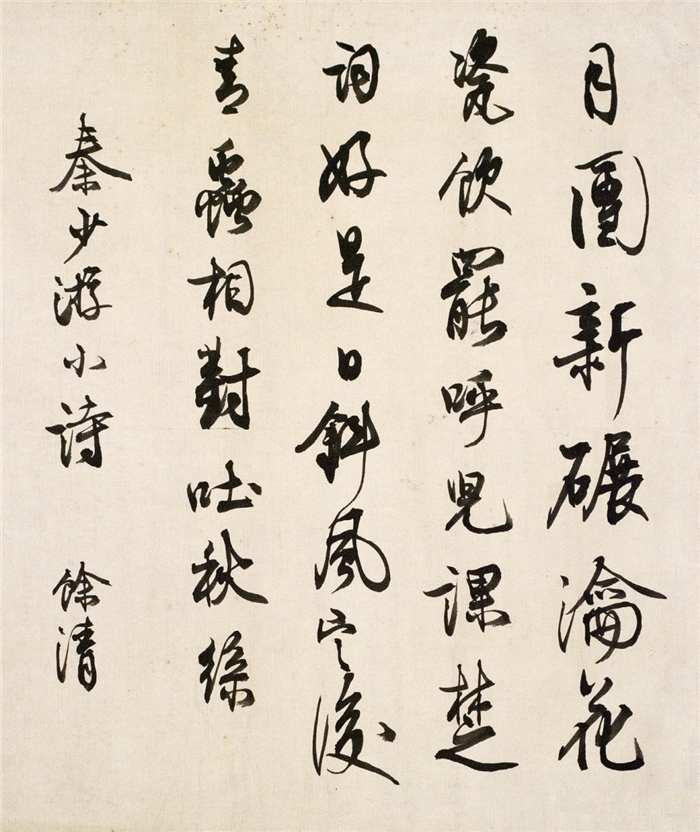 月團新碾瀹花
瓷飲罷呼兒課楚
詞好是日斜風定後
青蟲相對吐秋絲
秦少游小詩
餘清